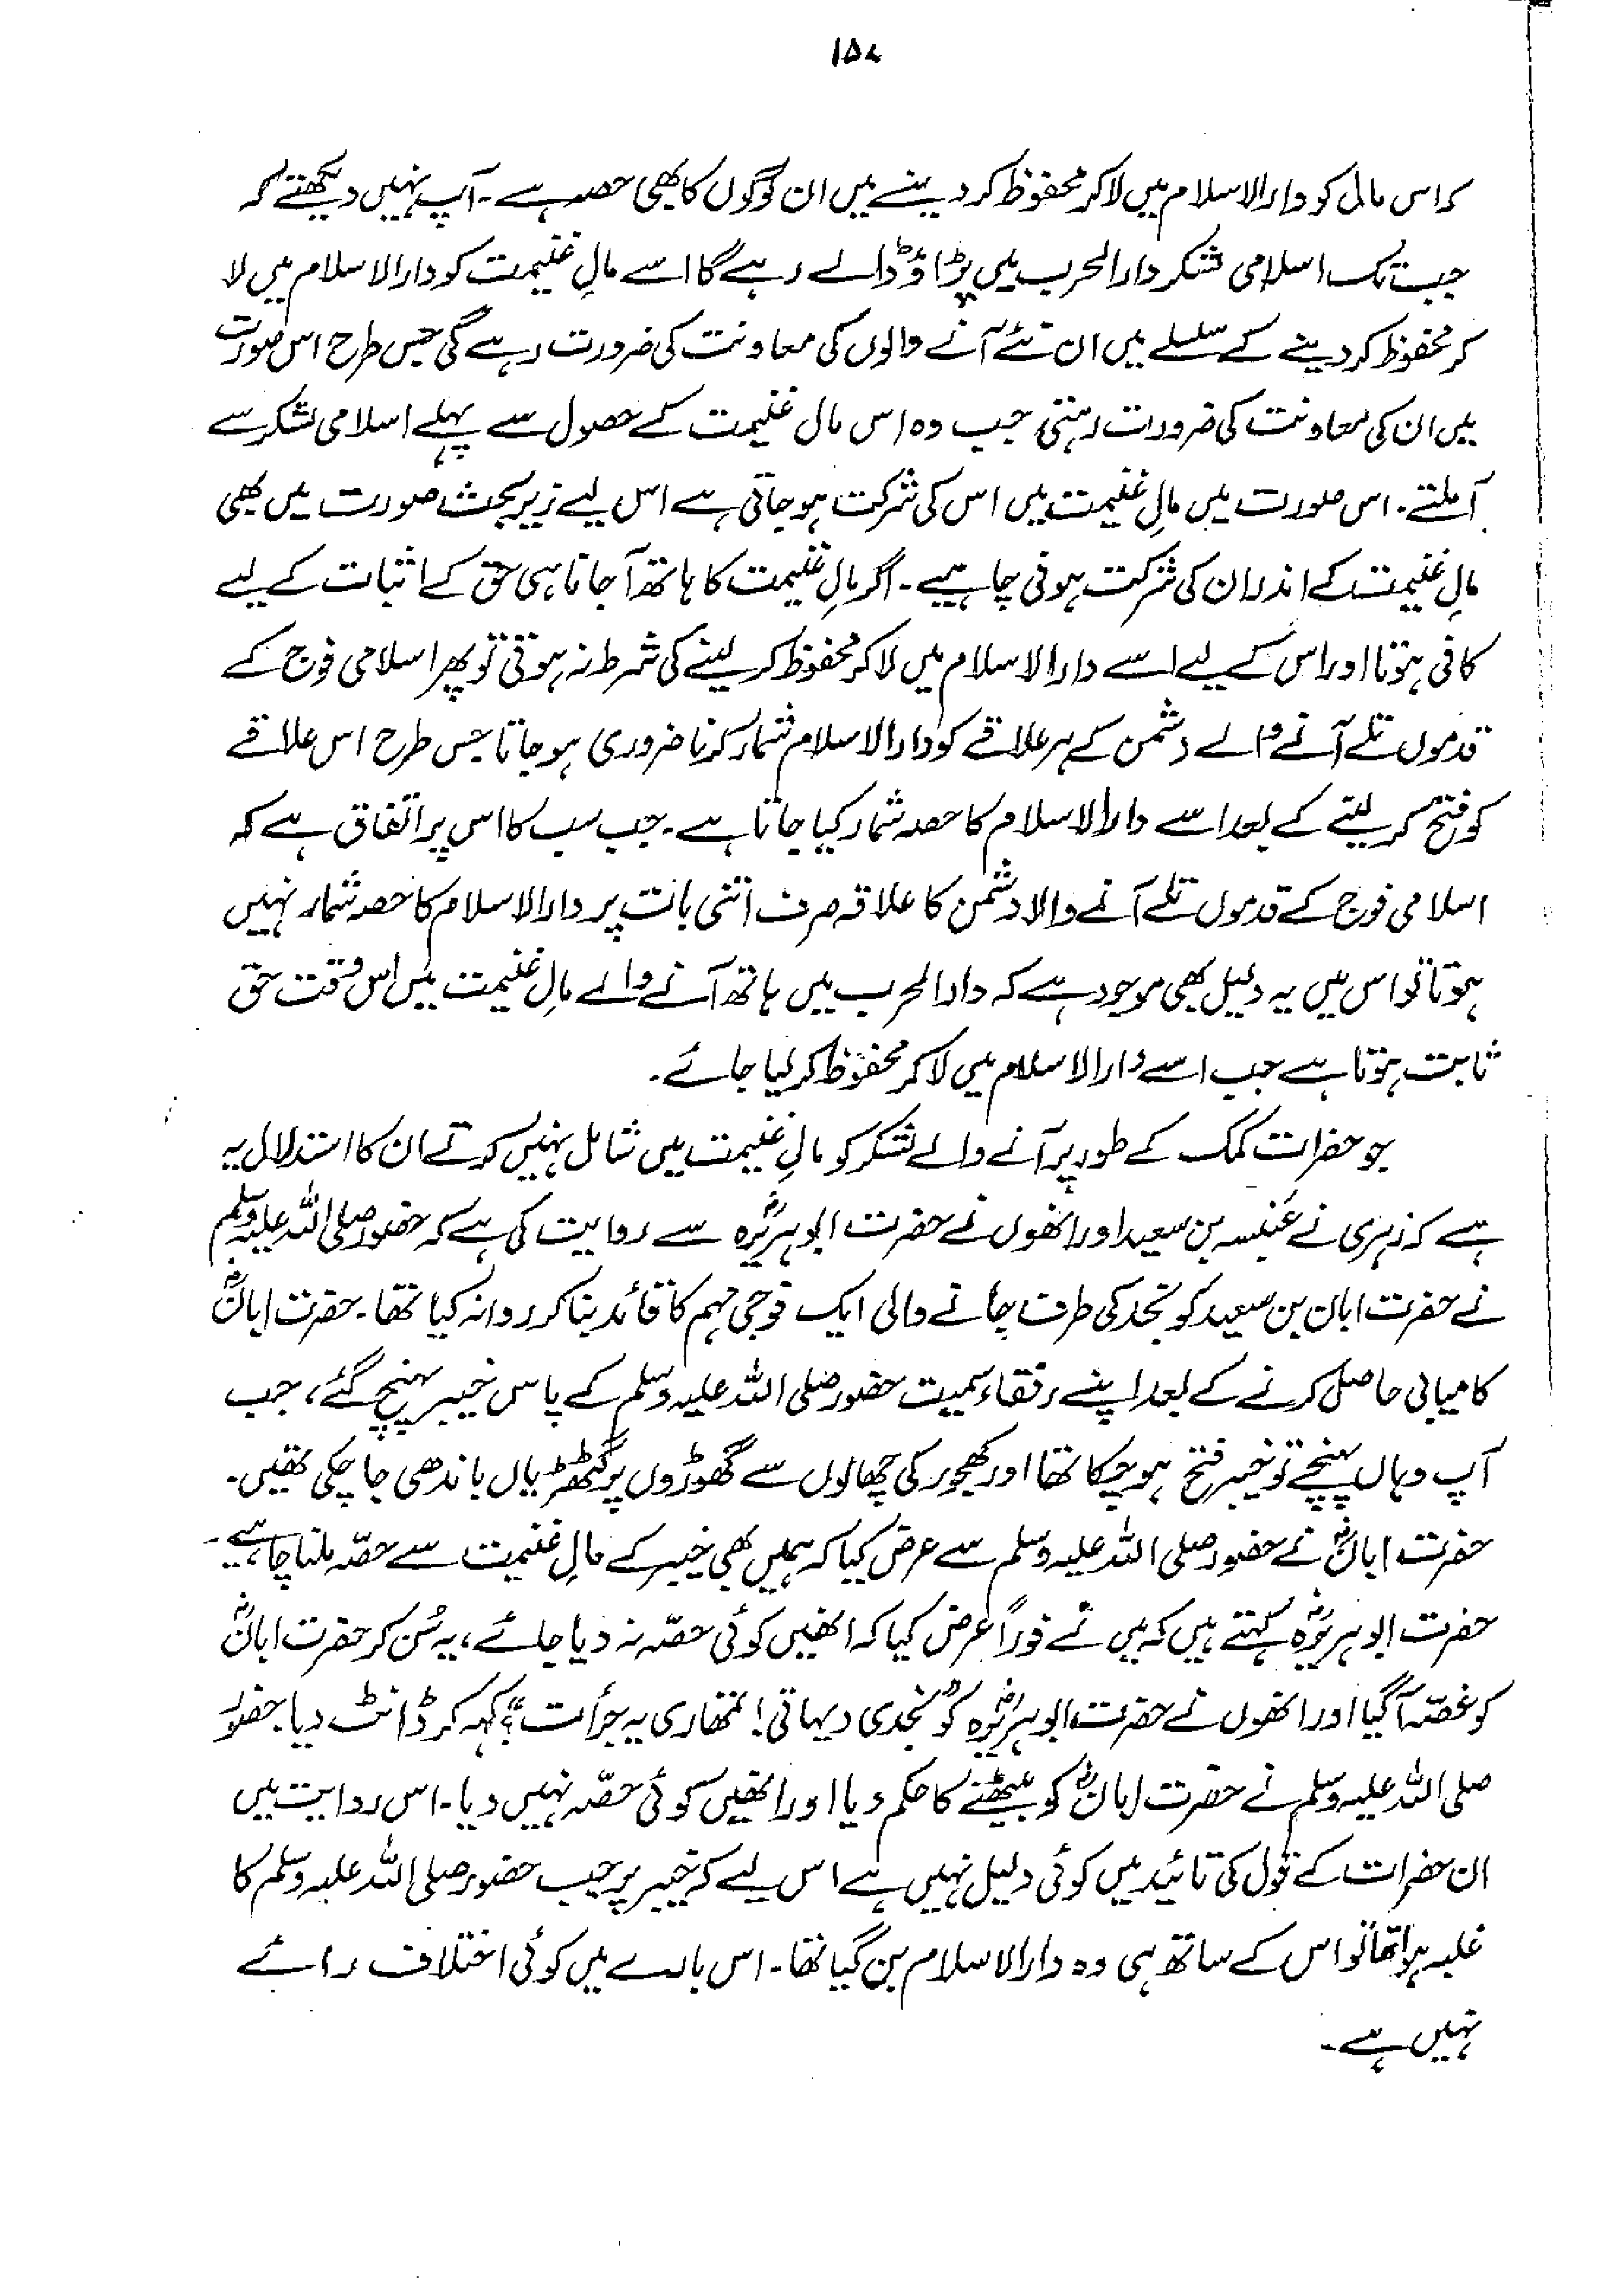 ۱۵۷
کہ اس مال کو دارالاسلام میں لاکر محفوظ کر دینے میں ان لوگوں کا بھی حصہ ہے۔ آپ نہیں دیکھتے کہ
جب تک اسلامی لشکر دارالحرب میں پڑاؤ ڈالے رہے گا اسے مالِ غنیمت کو دارالاسلام میں لا
کر محفوظ کر دینے کے سلسلے میں ان نئے آنے والوں کی معاونت کی ضرورت رہے گی جس طرح اس صورت
میں ان کی معاونت کی ضرورات رہتی جب وہ اس مال غنیمت کے حصول سے پہلے اسلامی لشکر سے
آ ملتے۔ اس صورت میں مالِ غنیمت میں اس کی شرکت ہو جاتی ہے اس لیے زیر بحث صورت میں بھی
مالِ غنیمت کے اندر ان کی شرکت ہونی چاہیے۔ اگر مالِ غنیمت کا ہاتھ آ جانا ہی حق کے اثبات کے لیے
کافی ہوتا اور اس کے لیے اسے دارالاسلام میں لاکر محفوظ کر لینے کی شرط نہ ہوتی تو پھر اسلامی فوج کے
قدموں تلے آنے والے دشمن کے ہر علاقے کو دارالاسلام شمار کرنا ضروری ہو جاتا جس طرح اس علاقے
کو فتح کر لینے کے بعد اسے دارالاسلام کا حصہ شمار کیا جاتا ہے۔ جب سب کا اس پر اتفاق ہے کہ
اسلامی فوج کے قدموں تلے آنے والا دشمن کا علاقہ صرف اتنی بات پر دارالاسلام کا حصہ شمار نہیں
ہوتا تو اس میں یہ دلیل بھی موجود ہے کہ دارالحرب میں ہاتھ آنے والے مالِ غنیمت میں اس وقت حق
ثابت ہوتا ہے جب اسے دارالاسلام میں لاکر محفوظ کر لیا جائے۔
جو حضرات کمک کے طور پر آنے والے لشکر کو مالِ غنیمت میں شامل نہیں کرتے ان کا استدلال یہ
ہے کہ زہری نے عنبسہ بن سعید اور انھوں نے حضرت ابو ہریرہؓ سے روایت کی ہے کہ حضور صلی اللہ علیہ وسلم
نے حضرت ابان بن سعید کو نجد کی طرف جانے والی ایک فوجی مہم کا قائد بنا کر روانہ کیا تھا۔ حضرت ابانؓ
کامیابی حاصل کرنے کے بعد اپنے رفقاء سمیت حضور صلی اللہ علیہ وسلم کے پاس خیبر پہنچ گئے، جب
آپ وہاں پہنچے تو خیبر فتح ہو چکا تھا اور کھجور کی چھالوں سے گھوڑوں پر گٹھڑیاں باندھی جا چکی تھیں۔
حضرت ابانؓ نے حضور صلی اللہ علیہ وسلم سے عرض کیا کہ ہمیں بھی خیبر کے مالِ غنیمت سے حصّہ ملنا چاہیے۔
حضرت ابو ہریرہؓ کہتے ہیں کہ میں نے فوراً عرض کیا کہ انھیں کوئی حصّہ نہ دیا جائے، یہ سُن کر حضرت ابانؓ
کو غصّہ آ گیا اور انھوں نے حضرت ابو ہریرہؓ کو "نجدی دیہاتی! تمھاری یہ جرأت"؟ کہہ کر ڈانٹ دیا۔ حضورؐ
صلی اللہ علیہ وسلم نے حضرت ابانؓ کو بیٹھنے کا حکم دیا اور انھیں کوئی حصّہ نہیں دیا۔ اس روایت میں
ان حضرات کے قول کی تائید میں کوئی دلیل نہیں ہے اس لیے کہ خیبر پر جب حضور صلی اللہ علیہ وسلم کا
غلبہ ہوا تھا تو اس کے ساتھ ہی وہ دارالاسلام بن گیا تھا۔ اس بارے میں کوئی اختلاف رائے
نہیں ہے۔